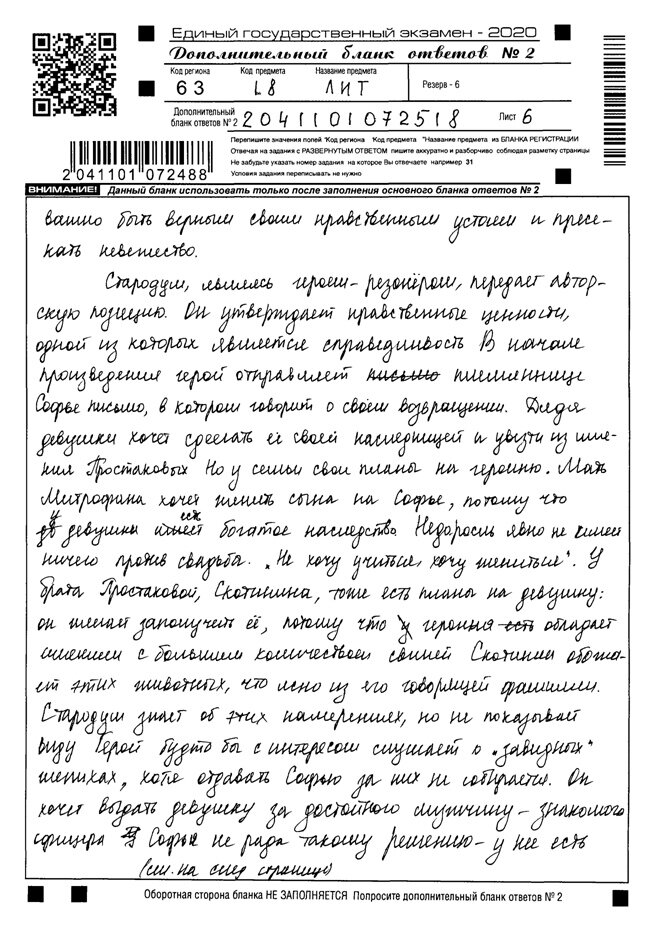 Единый государственный экзамен - 2020
Дополнительный бланк ответов № 2
Код региона Код предмета Название предмета
63 18 ЛИТ Резерв - 6
Дополнительный бланк ответов № 2 2041101072518 Лист 6
Перепишите значения полей "Код региона "Код предмета "Название предмета из БЛАНКА РЕГИСТРАЦИИ
Отвечая на задания с РАЗВЕРНУТЫМ ОТВЕТОМ пишите аккуратно и разборчиво соблюдая разметку страницы
Не забудьте указать номер задания на которое Вы отвечаете например 31
Условия задания переписывать не нужно
2 041101 072488
ВНИМАНИЕ! Данный бланк использовать только после заполнения основного бланка ответов № 2
важно быть верным своим нравственным устоям и пресе-
кать невежество.
Стародум, являясь героем-резонёром, передает автор-
скую позицию. Он утверждает нравственные ценности,
одной из которых является справедливость В начале
произведения герой отправляет письмо племяннице
Софье письмо, в котором говорит о своём возвращении. Дядя
девушки хочет сделать её своей наследницей и увезти из име-
ния Простаковых Но у семьи свои планы на героиню. Мать
Митрофана хочет женить сына на Софье, потому что
у девушки есть богатое наследство Недоросль явно не имеет
ничего против свадьбы. „Не хочу учиться, хочу жениться". У
брата Простаковой, Скотинина, тоже есть планы на девушку:
он желает заполучить её, потому что героиня есть обладает
имением с большим количеством свиней Скотинин обожа-
ет этих животных, что ясно из его говорящей фамилии.
Стародум знает об этих намерениях, но не показывает
виду Герой будто бы с интересом слушает о „завидных"
женихах, хотя отдавать Софью за них не собирается. Он
хочет выдать девушку за достойного мужчину – знакомого
офицера Софья не рада такому решению – у нее есть
(см. на след страницу)
Оборотная сторона бланка НЕ ЗАПОЛНЯЕТСЯ Попросите дополнительный бланк ответов № 2